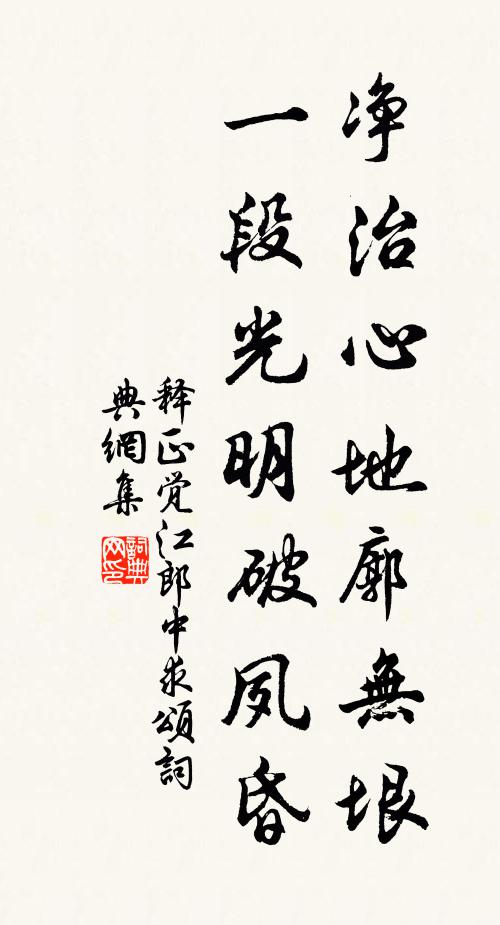 净治心地廓無垠
一段光明破夙昏
释正觉江郎中求頌詞
典網集
詞典
网印